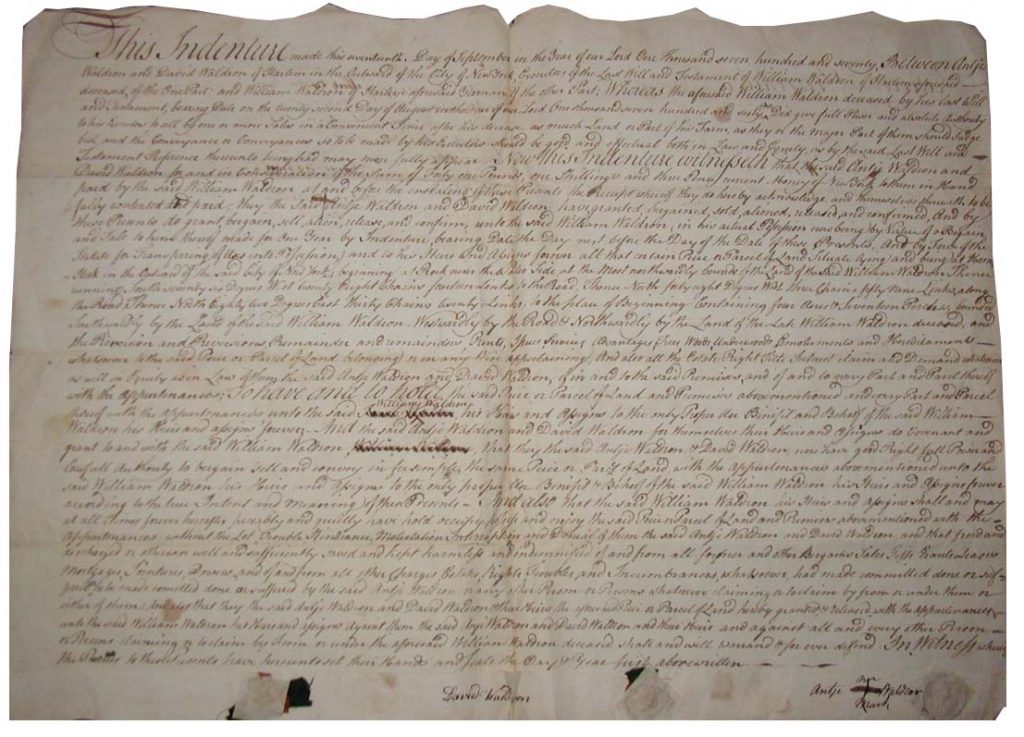 This Indenture made this seventeenth Day of September in the Year of our Lord One Thousand seven hundred and seventy, Between Antje
Waldron and David Waldron of Harlem in the Outward of the City of New York, Executors of the Last Will and Testament of William Waldron of Harlem aforesaid
deceased, of the One Part and William Waldron of Harlem aforesaid Yeoman of the other Part, Whereas the aforesaid William Waldron deceased by his last Will
and Testament, bearing Date on the twenty second Day of August in the Year of our Lord One thousand seven hundred and sixty Did give full Power and absolute Authority
to his Executors to sell by one or more Sales in a Convenient Time after his decease as much Land or Part of his Farm, as they or the Major Part of them should Judge
best and the Conveyance or Conveyances so to be made by his Executors should be good and effectual both in Law and Equity, as by the said Last Will and
Testament Reference thereunto being had may more fully appear Now this Indenture witnesseth that the said Antje Waldron and
David Waldron for and in Consideration of the Sum of Forty one Pounds, Shillings and three Pence current Money of New York to them in Hand
paid by the said William Waldron at and before the ensealing of these Presents the Receipt whereof they do hereby acknowledge, and themselves therewith to be
fully contented and paid; they the said Antje Waldron and David Waldron have granted, bargained, sold, aliened, released, and confirmed, And by
these Presents do grant, bargain, sell, alien, release, and confirm, unto the said William Waldron, in his actual Possession now being by Virtue of a Bargain
and Sale to him thereof made for One Year by Indenture, bearing Date the Day next before the Day of the Date of these Presents, And by Force of the
Statute for Transferring of Uses into Possession) and to his Heirs and Assigns forever all that certain Piece or Parcel of Land Situate lying and being at Horn
Hook in the Outward of the said City of New York, beginning at Rock near the Side at the Most northwardly bounds of the Land of the said William Waldron Thence
running South sixty six Degrees West twenty Eight chains fourteen Links to the Road, Thence North forty eight Degrees West three Chains fifty Nine Links along
the Road Thence North Eighty two Degrees East thirty Chains twenty Links, to the place of Beginning Containing four Acres & Seventeen Perches, bounded
Southwardly by the Land of the said William Waldron, Westwardly by the Road & Northwardly by the Land of the Late William Waldron deceased, and
the Reversion and Reversions Remainder and remainders, Rents, Issues Services, Advantages, Trees Woods, Underwoods Emoluments and Hereditaments
whatsoever to the said Piece or Parcel of Land belonging or in any Wise appertaining And also all the Estate Right Title Interest claim and Demand whatsoever
as well in Equity as in Law of them the said Antje Waldron and David Waldron, of in and to the said Premises, and of and to every Part and Parcel thereof
with the Appurtenances; To have and to hold the said Piece or Parcel of Land and Premises above mentioned and every Part and Parcel
thereof with the Appurtenances unto the said William Waldron his Heirs and Assigns to the only Proper Use Benefit and Behoof of the said William
Waldron his Heirs and assigns forever And the said Antje Waldron and David Waldron for themselves their Heirs and Assigns do Covenant and
grant to and with the said William Waldron That they the said Antje Waldron & David Waldron now have good Right full Power and
lawfull Authority to bargain sell and convey in fee simple, the same Piece or Parcel of Land with the appurtenances above mentioned unto the
said William Waldron his Heirs and Assigns to the only proper Use Benefit & Behoof of the said William Waldron his Heirs and Assigns forever
according to the true Intent and meaning of these Presents And also that the said William Waldron his Heirs and Assigns shall and may
at all Times forever hereafter peaceably and quietly have hold occupy possess and enjoy the said Piece or Parcel of Land and Premises above mentioned with the
Appurtenances without the Let Trouble Hindrance Molestation Interruption and Denial of them the said Antje Waldron and David Waldron, and that freed and
discharged or otherwise well and sufficiently saved and kept harmless and indemnified of and from all former and other Bargains Sales Gifts Grants Leases
Mortgages Jointures, Dowers and of and from all other Charges Estates Rights, Troubles, and Incumbrances whatsoever had made committed done or suf-
to be made committed done or suffered by the said Antje Waldron or any other Person or Persons whatsoever claiming or to claim by from or under them or
either of them; And also that they the said Antje Waldron and David Waldron & their Heirs the aforesaid Piece or Parcel of Land hereby granted & released with the appurtenances
unto the said William Waldron his Heirs and assigns against them the said Antje Waldron and David Waldron and their Heirs and against all and every other Person
or Persons claiming or to claim by from or under the aforesaid William Waldron deceased shall and will warrant & for ever defend In Witness whereof
the Parties to these Presents have hereunto set their Hands and Seals the Day & Year first above written
David Waldron
Antje her Waldron
Mark